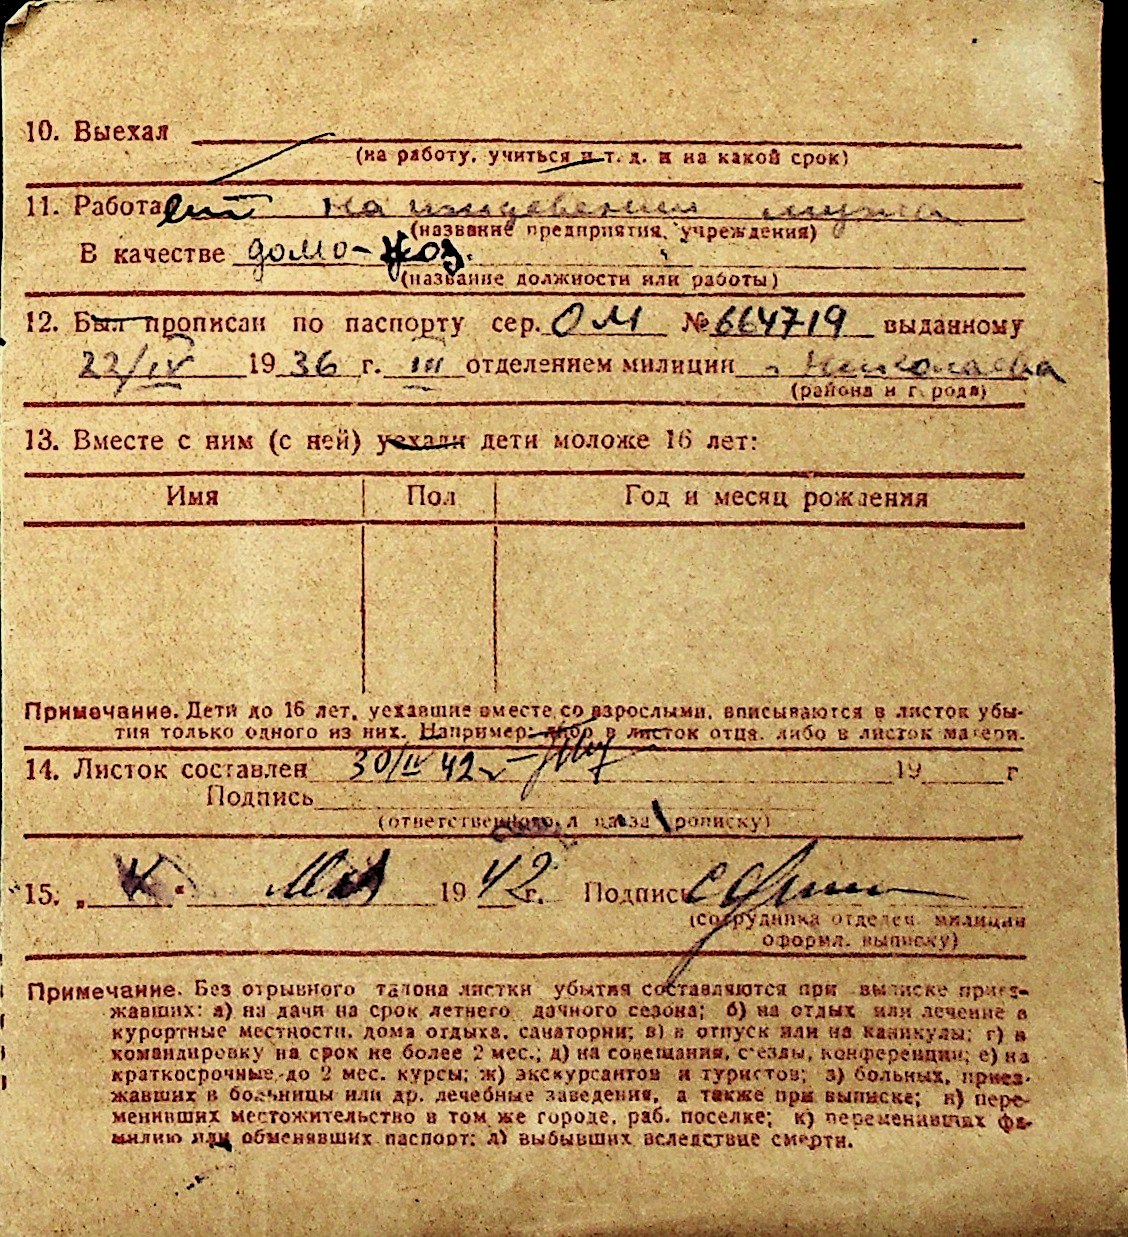 10. Выехал
(на работу, учиться и т. д. и на какой срок)
11. Работает на иждевении мужа
(название предприятия, учреждения)
В качестве домо-хоз.
(название должности или работы)
12. Был прописан по паспорту сер. ОМ № 664719 выданному
22/IV 1936 г. III отделением милиции г. Николаева
(района и города)
13. Вместе с ним (с ней) уехали дети моложе 16 лет:
Имя Пол Год и месяц рождения
Примечание. Дети до 16 лет, уехавшие вместе со взрослыми, вписываются в листок убы-
тия только одного из них. Например: либо в листок отца, либо в листок матери.
14. Листок составлен 30/IV 42 г. 19 г
Подпись
(ответственного лица за прописку)
15. „ " Мая 1942 г. Подпись
(сотрудника отделен. милиции
оформл. выписку)
Примечание. Без отрывного талона листки убытия составляются при выписке приез-
жавших: а) на дачи на срок летнего дачного сезона; б) на отдых или лечение в
курортные местности, дома отдыха, санатории; в) в отпуск или на каникулы; г) в
командировку на срок не более 2 мес.; д) на совещания, с'езды, конференции; е) на
краткосрочные, до 2 мес. курсы; ж) экскурсантов и туристов; з) больных, приез-
жавших в больницы или др. лечебные заведения, а также при выписке; и) пере-
менивших местожительство в том же городе, раб. поселке; к) переменивших фа-
милию или обменявших паспорт; л) выбывших вследствие смерти.